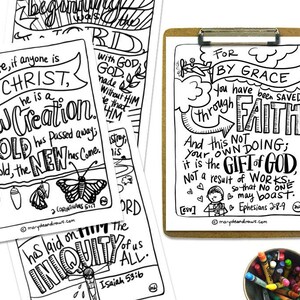 Beginning
was
WORD
with God,
GOD,
made
without
HIM
e, if anyone is
CHRIST,
he is a
W Creation.
OLD has Passed away;
ld, the NEW has Come.
2 Corinthians 5:17
© marydeandraws.com
has laid on HIM the
INIQUITY of us
ALL.
Isaiah 53:6
© marydeandraws.com
FOR
BY GRACE
you have been SAVED
through FAITH
And this NOT
your OWN DOING;
it is the GIFT of GOD,
NOT a result of WORKS,
so that NO ONE
may boast.
[ESV]
Ephesians 2:8-9
© marydeandraws.com